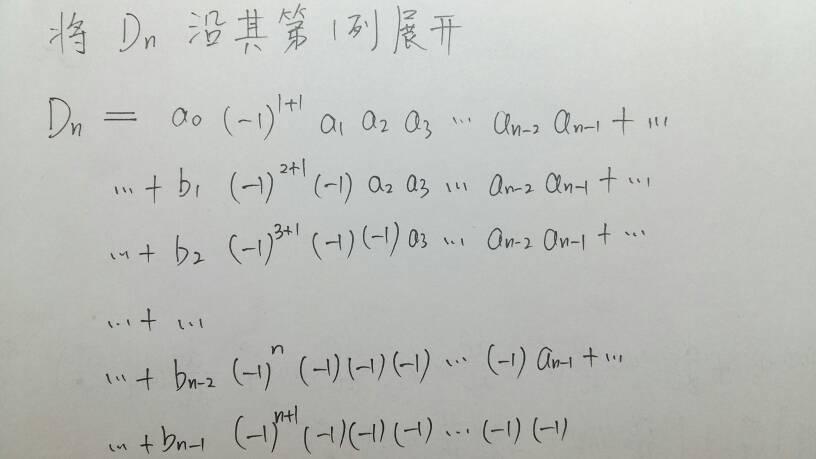 将 Dn 沿其第1列展开
Dn = a₀ (-1)¹⁺¹ a₁ a₂ a₃ ⋯ aₙ₋₂ aₙ₋₁ + ⋯
⋯ + b₁ (-1)²⁺¹ (-1) a₂ a₃ ⋯ aₙ₋₂ aₙ₋₁ + ⋯
⋯ + b₂ (-1)³⁺¹ (-1)(-1) a₃ ⋯ aₙ₋₂ aₙ₋₁ + ⋯
⋯ + ⋯
⋯ + bₙ₋₂ (-1)ⁿ (-1)(-1)(-1) ⋯ (-1) aₙ₋₁ + ⋯
⋯ + bₙ₋₁ (-1)ⁿ⁺¹ (-1)(-1)(-1) ⋯ (-1)(-1)